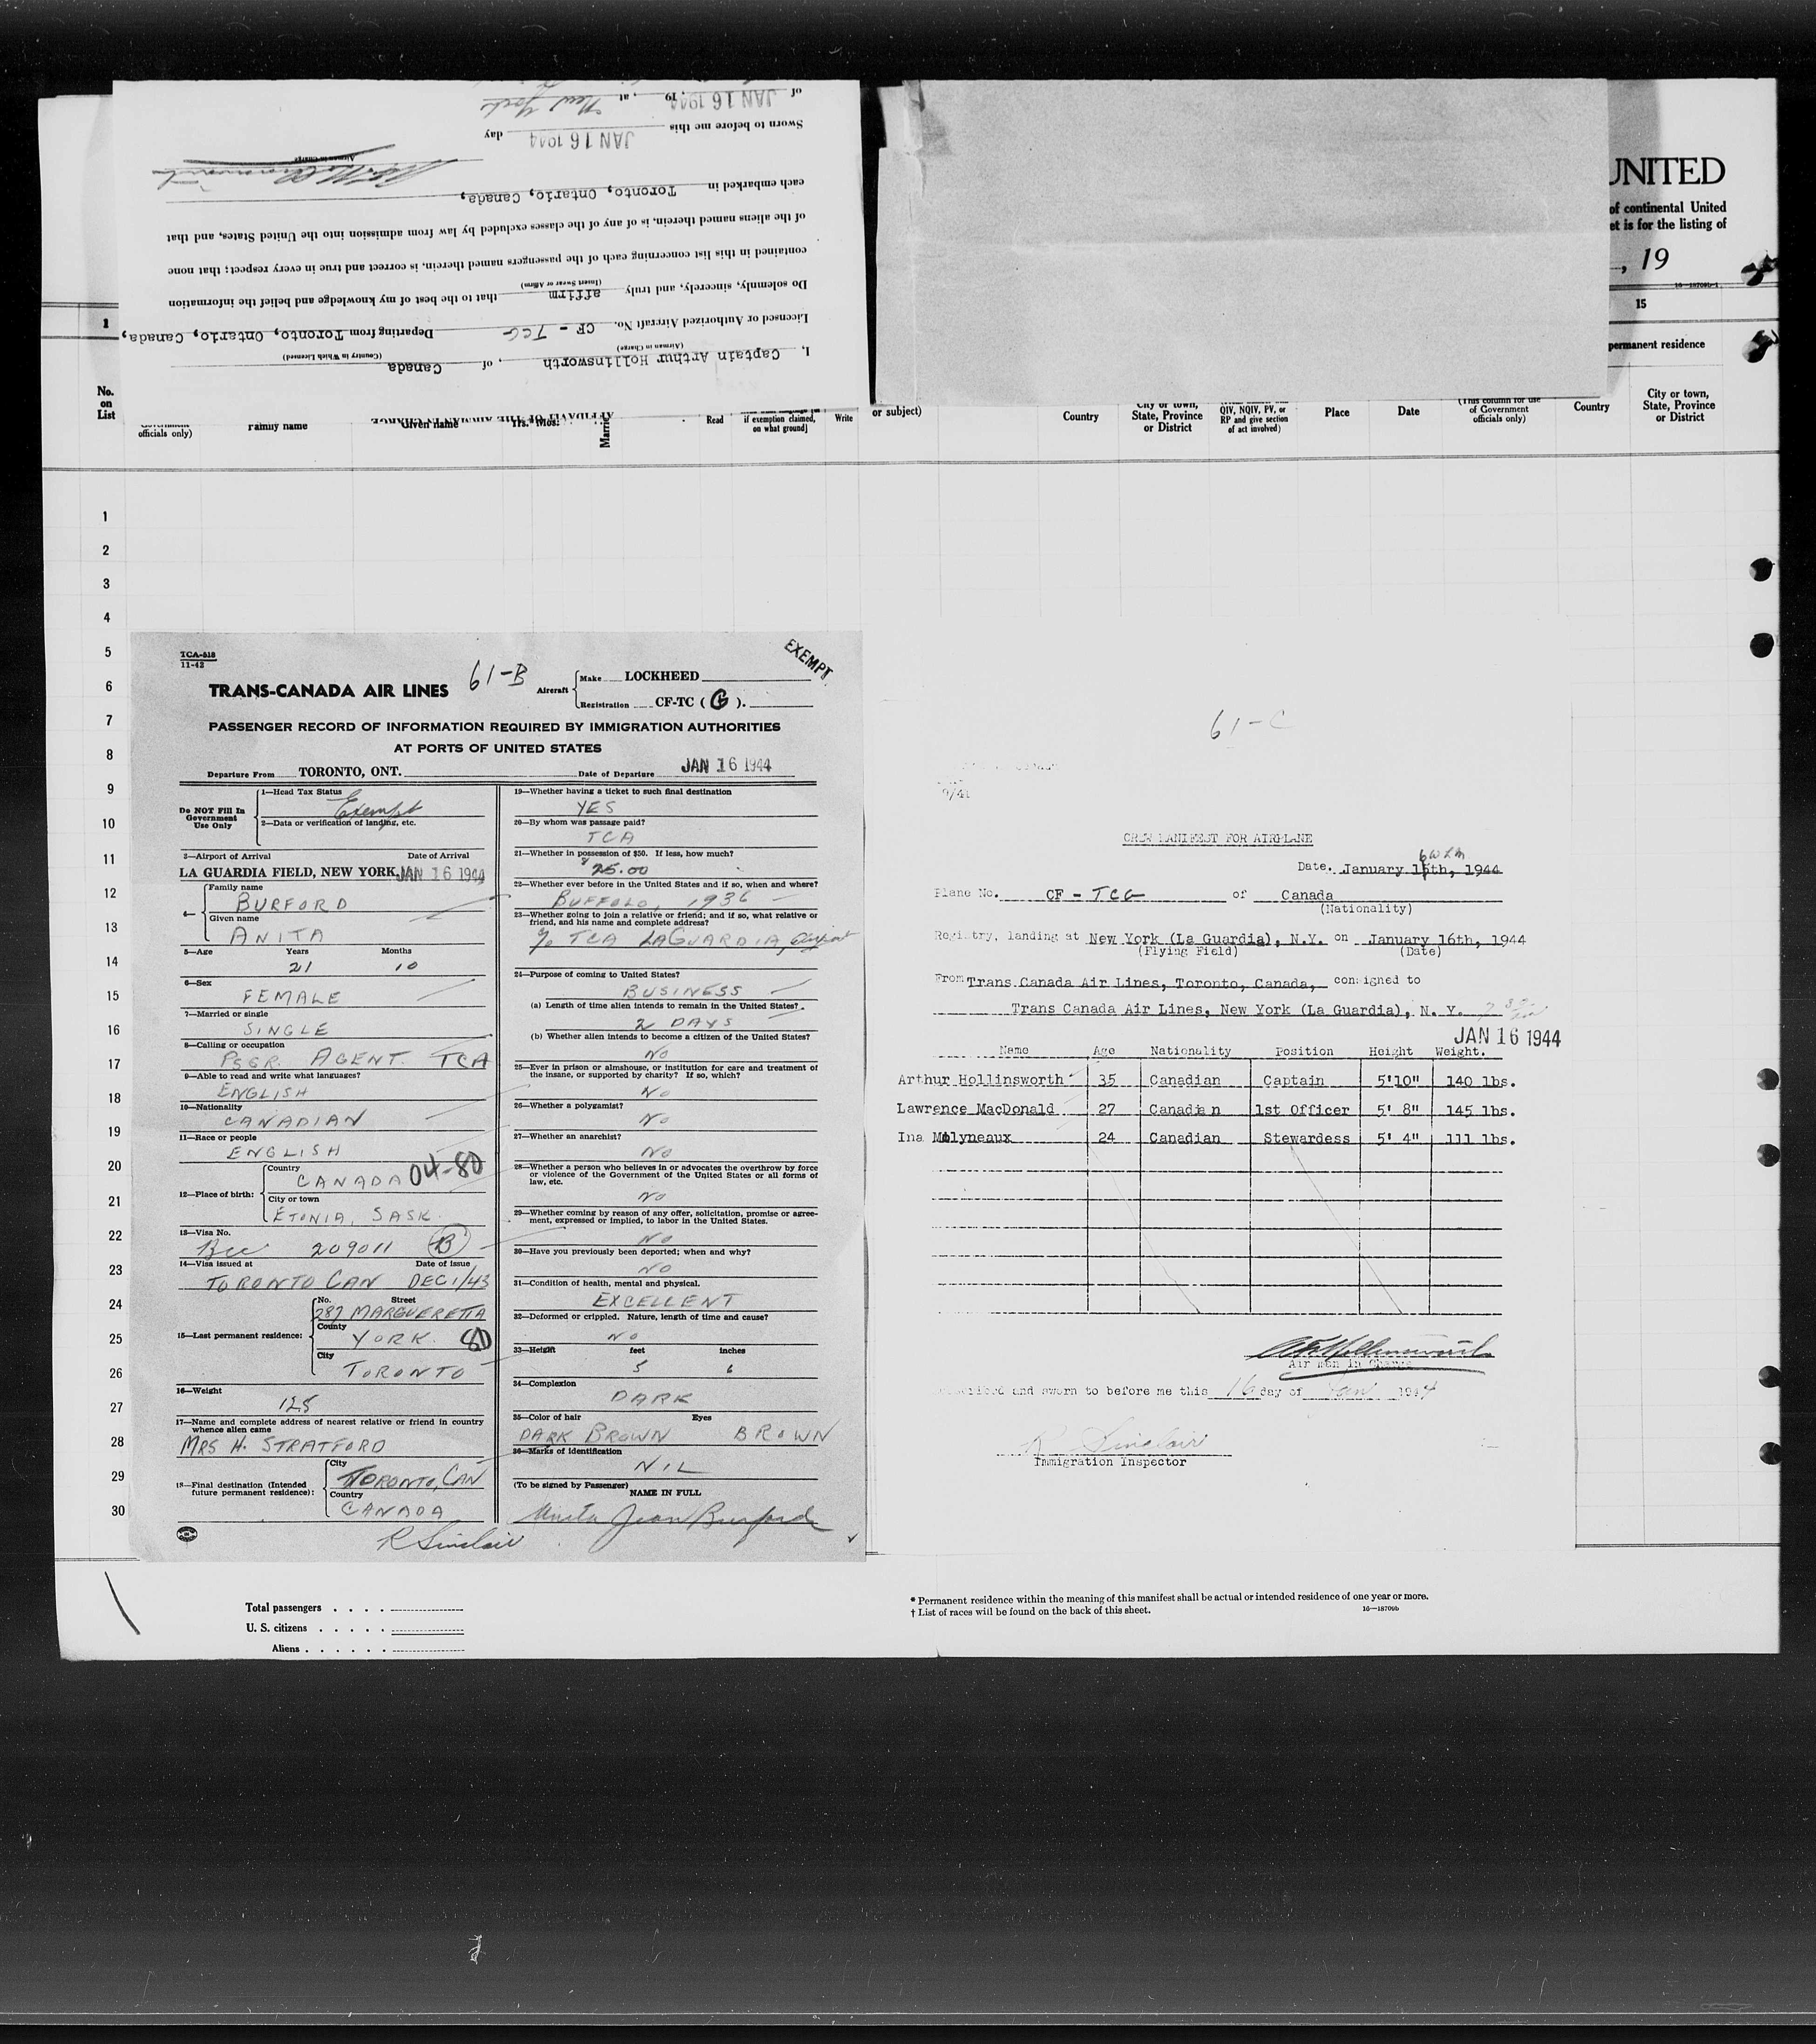 of JAN 16 1944, 19 , at New York
Sworn to before me this JAN 16 1944 day
Airman in Charge
each embarked in Toronto, Ontario, Canada,
of the aliens named therein, is of any of the classes excluded by law from admission into the United States, and that
contained in this list concerning each of the passengers named therein, is correct and true in every respect; that none
(Insert Swear or Affirm)
Do solemnly, sincerely, and truly affirm that to the best of my knowledge and belief the information
Licensed or Authorized Aircraft No. CF - TCG Departing from Toronto, Ontario, Canada,
(Airman in Charge) (Country in Which Licensed)
I, Captain Arthur Hollinsworth, of Canada
AFFIDAVIT OF THE AIRMAN IN CHARGE
UNITED
of continental United
et is for the listing of
, 19
16—18709b-1
1
15
permanent residence
No.
on
List
officials only)
Family name
Given name
Yrs. Mos.
Read
if exemption claimed,
on what ground]
Write
or subject)
Country
City or town,
State, Province
or District
QIV, NQIV, PV, or
RP and give section
of act involved)
Place
Date
(This column for use
of Government
officials only)
Country
City or town,
State, Province
or District
1
2
3
4
5
6
7
8
9
10
11
12
13
14
15
16
17
18
19
20
21
22
23
24
25
26
27
28
29
30
TCA-518
11-42
61-B
EXEMPT
TRANS-CANADA AIR LINES
Aircraft Make LOCKHEED
Registration CF-TC ( G ).
PASSENGER RECORD OF INFORMATION REQUIRED BY IMMIGRATION AUTHORITIES
AT PORTS OF UNITED STATES
Departure From TORONTO, ONT. Date of Departure JAN 16 1944
Do NOT Fill In
Government
Use Only
1—Head Tax Status
Exempt
2—Data or verification of landing, etc.
3—Airport of Arrival Date of Arrival
LA GUARDIA FIELD, NEW YORK, JAN 16 1944
4—
Family name
BURFORD
Given name
ANITA
5—Age Years Months
21 10
6—Sex
FEMALE
7—Married or single
SINGLE
8—Calling or occupation
PSGR. AGENT. TCA
9—Able to read and write what languages?
ENGLISH
10—Nationality
CANADIAN
11—Race or people
ENGLISH
12—Place of birth:
Country
CANADA 04-80
City or town
ETONIA, SASK.
13—Visa No.
Bcc 209011 B
14—Visa issued at Date of issue
TORONTO CAN DEC 1/43
15—Last permanent residence:
No. Street
287 MARGUERETTA
County
YORK. 80
City
TORONTO
16—Weight
125
17—Name and complete address of nearest relative or friend in country
whence alien came
MRS H. STRATFORD
18—Final destination (Intended
future permanent residence):
City
TORONTO, CAN
Country
CANADA
R Sinclair
19—Whether having a ticket to such final destination
YES
20—By whom was passage paid?
TCA
21—Whether in possession of $50. If less, how much?
$25.00
22—Whether ever before in the United States and if so, when and where?
BUFFOLO, 1936
23—Whether going to join a relative or friend; and if so, what relative or
friend, and his name and complete address?
℅ TCA LAGUARDIA, airport
24—Purpose of coming to United States?
BUSINESS
(a) Length of time alien intends to remain in the United States?
2 DAYS
(b) Whether alien intends to become a citizen of the United States?
NO
25—Ever in prison or almshouse, or institution for care and treatment of
the insane, or supported by charity? If so, which?
NO
26—Whether a polygamist?
NO
27—Whether an anarchist?
NO
28—Whether a person who believes in or advocates the overthrow by force
or violence of the Government of the United States or all forms of
law, etc.
NO
29—Whether coming by reason of any offer, solicitation, promise or agree-
ment, expressed or implied, to labor in the United States.
NO
30—Have you previously been deported; when and why?
NO
31—Condition of health, mental and physical.
EXCELLENT
32—Deformed or crippled. Nature, length of time and cause?
NO
33—Height feet inches
5 6
34—Complexion
DARK
35—Color of hair Eyes
DARK BROWN BROWN
36—Marks of identification
NIL
(To be signed by Passenger)
NAME IN FULL
Anita Jean Burford
61-C
9/41
CREW MANIFEST FOR AIRPLANE
Date. January 15th, 1944
Plane No. CF - TCG of Canada
(Nationality)
Registry, landing at New York (La Guardia), N.Y. on January 16th, 1944
(Flying Field) (Date)
From Trans Canada Air Lines, Toronto, Canada, consigned to
Trans Canada Air Lines, New York (La Guardia), N. Y.
JAN 16 1944
Name Age Nationality Position Height Weight.
Arthur Hollinsworth 35 Canadian Captain 5'10" 140 lbs.
Lawrence MacDonald 27 Canadian 1st Officer 5' 8" 145 lbs.
Ina Molyneaux 24 Canadian Stewardess 5' 4" 111 lbs.
Air men in Charge
and sworn to before me this 16 day of Jan 1944
R Sinclair
Immigration Inspector
Total passengers
U. S. citizens
Aliens
* Permanent residence within the meaning of this manifest shall be actual or intended residence of one year or more.
† List of races will be found on the back of this sheet.
16—18709b